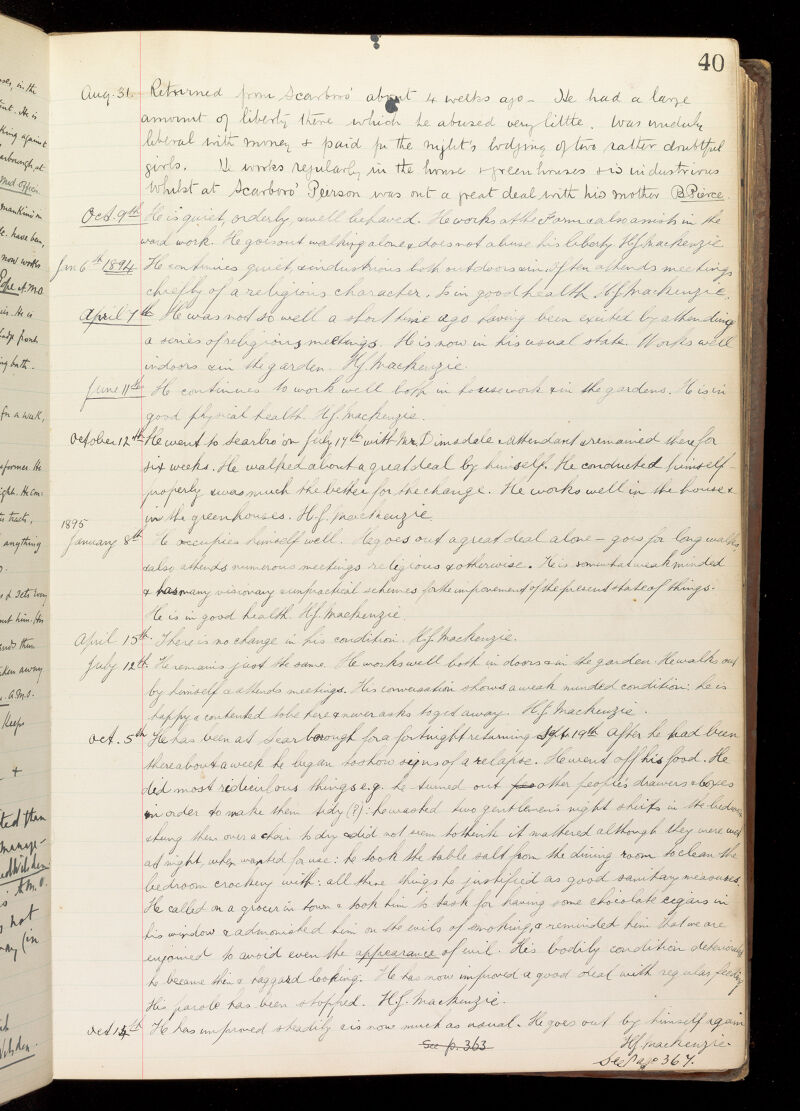 40
Aug. 31. Returned from Scarboro' about 4 weeks ago - He had a large
amount of liberty there which he abused very little. Was unduly
liberal with money & paid for the night's lodging of two rather doubtful
girls. He works regularly in the house & greenhouses & is industrious
Whilst at Scarboro' Peerson was out a great deal with his mother B. Pierce.
Oct. 9th He is quiet, orderly, & well behaved. He works at the Farm & also assists in the
ward work. He goes out walking alone & does not abuse his liberty H.J. Mackenzie
Jan 6th 1894 He continues quiet, & industrious both outdoors & in, often attends meetings
chiefly of a religious character. Is in good health H.J. Mackenzie.
April 7th He was not so well a short time ago having been excited by attending
a series of religious meetings. He is now in his usual state. Works well
indoors & in the garden. H.J. Mackenzie.
June 11th He continues to work well both in housework & in the gardens. He is in
good physical health. H.J. Mackenzie.
October 12th He went to Scarbro' on July 17th with Mr. Dimsdale & attendant & remained there for
six weeks. He walked about a great deal by himself. He conducted himself
properly & was much the better for the change. He works well in the house &
in the greenhouses. H.J. Mackenzie
1895
January 8th He occupies himself well. He goes out a great deal alone - goes for long walks,
& also attends numerous meetings religious & otherwise. He is somewhat weak minded
& has many visionary & unpractical schemes for the improvement of the present state of things.
He is in good health. H.J. Mackenzie
April 15th. There is no change in his condition. H.J. Mackenzie.
July 12th. He remains just the same. He works well both in doors & in the garden. He walks out
by himself & attends meetings. His conversation shows a weak minded condition: he is
happy & contented to be here & never asks to get away. H.J. Mackenzie.
Oct. 5th He has been at Scarborough for a fortnight returning Sept. 19th. After he had been
there about a week he began to show signs of a relapse. He went off his food. He
did most ridiculous things e.g. he turned out other people's drawers & boxes
in order to make them tidy (?): he washed two gentlemen's night shirts in the bedroom
& hung them over a chair to dry & did not seem to think it mattered although they were wet
at night, when wanted for use: he took the table salt from the dining room to clean the
bedroom crockery with: all these things he justified as good sanitary measures.
He called on a grocer in town & took him to task for having some chocolate cigars in
his window & admonished him on the evils of smoking, & reminded him that we are
enjoined to avoid even the appearance of evil. His bodily condition deteriorated
he became thin & haggard looking. He has now improved a good deal with regular feeding
His parole has been stopped. H.J. Mackenzie.
Oct 14th He has improved steadily & is now much as usual. He goes out by himself again
See p. 363
H.J. Mackenzie.
See Page 367.